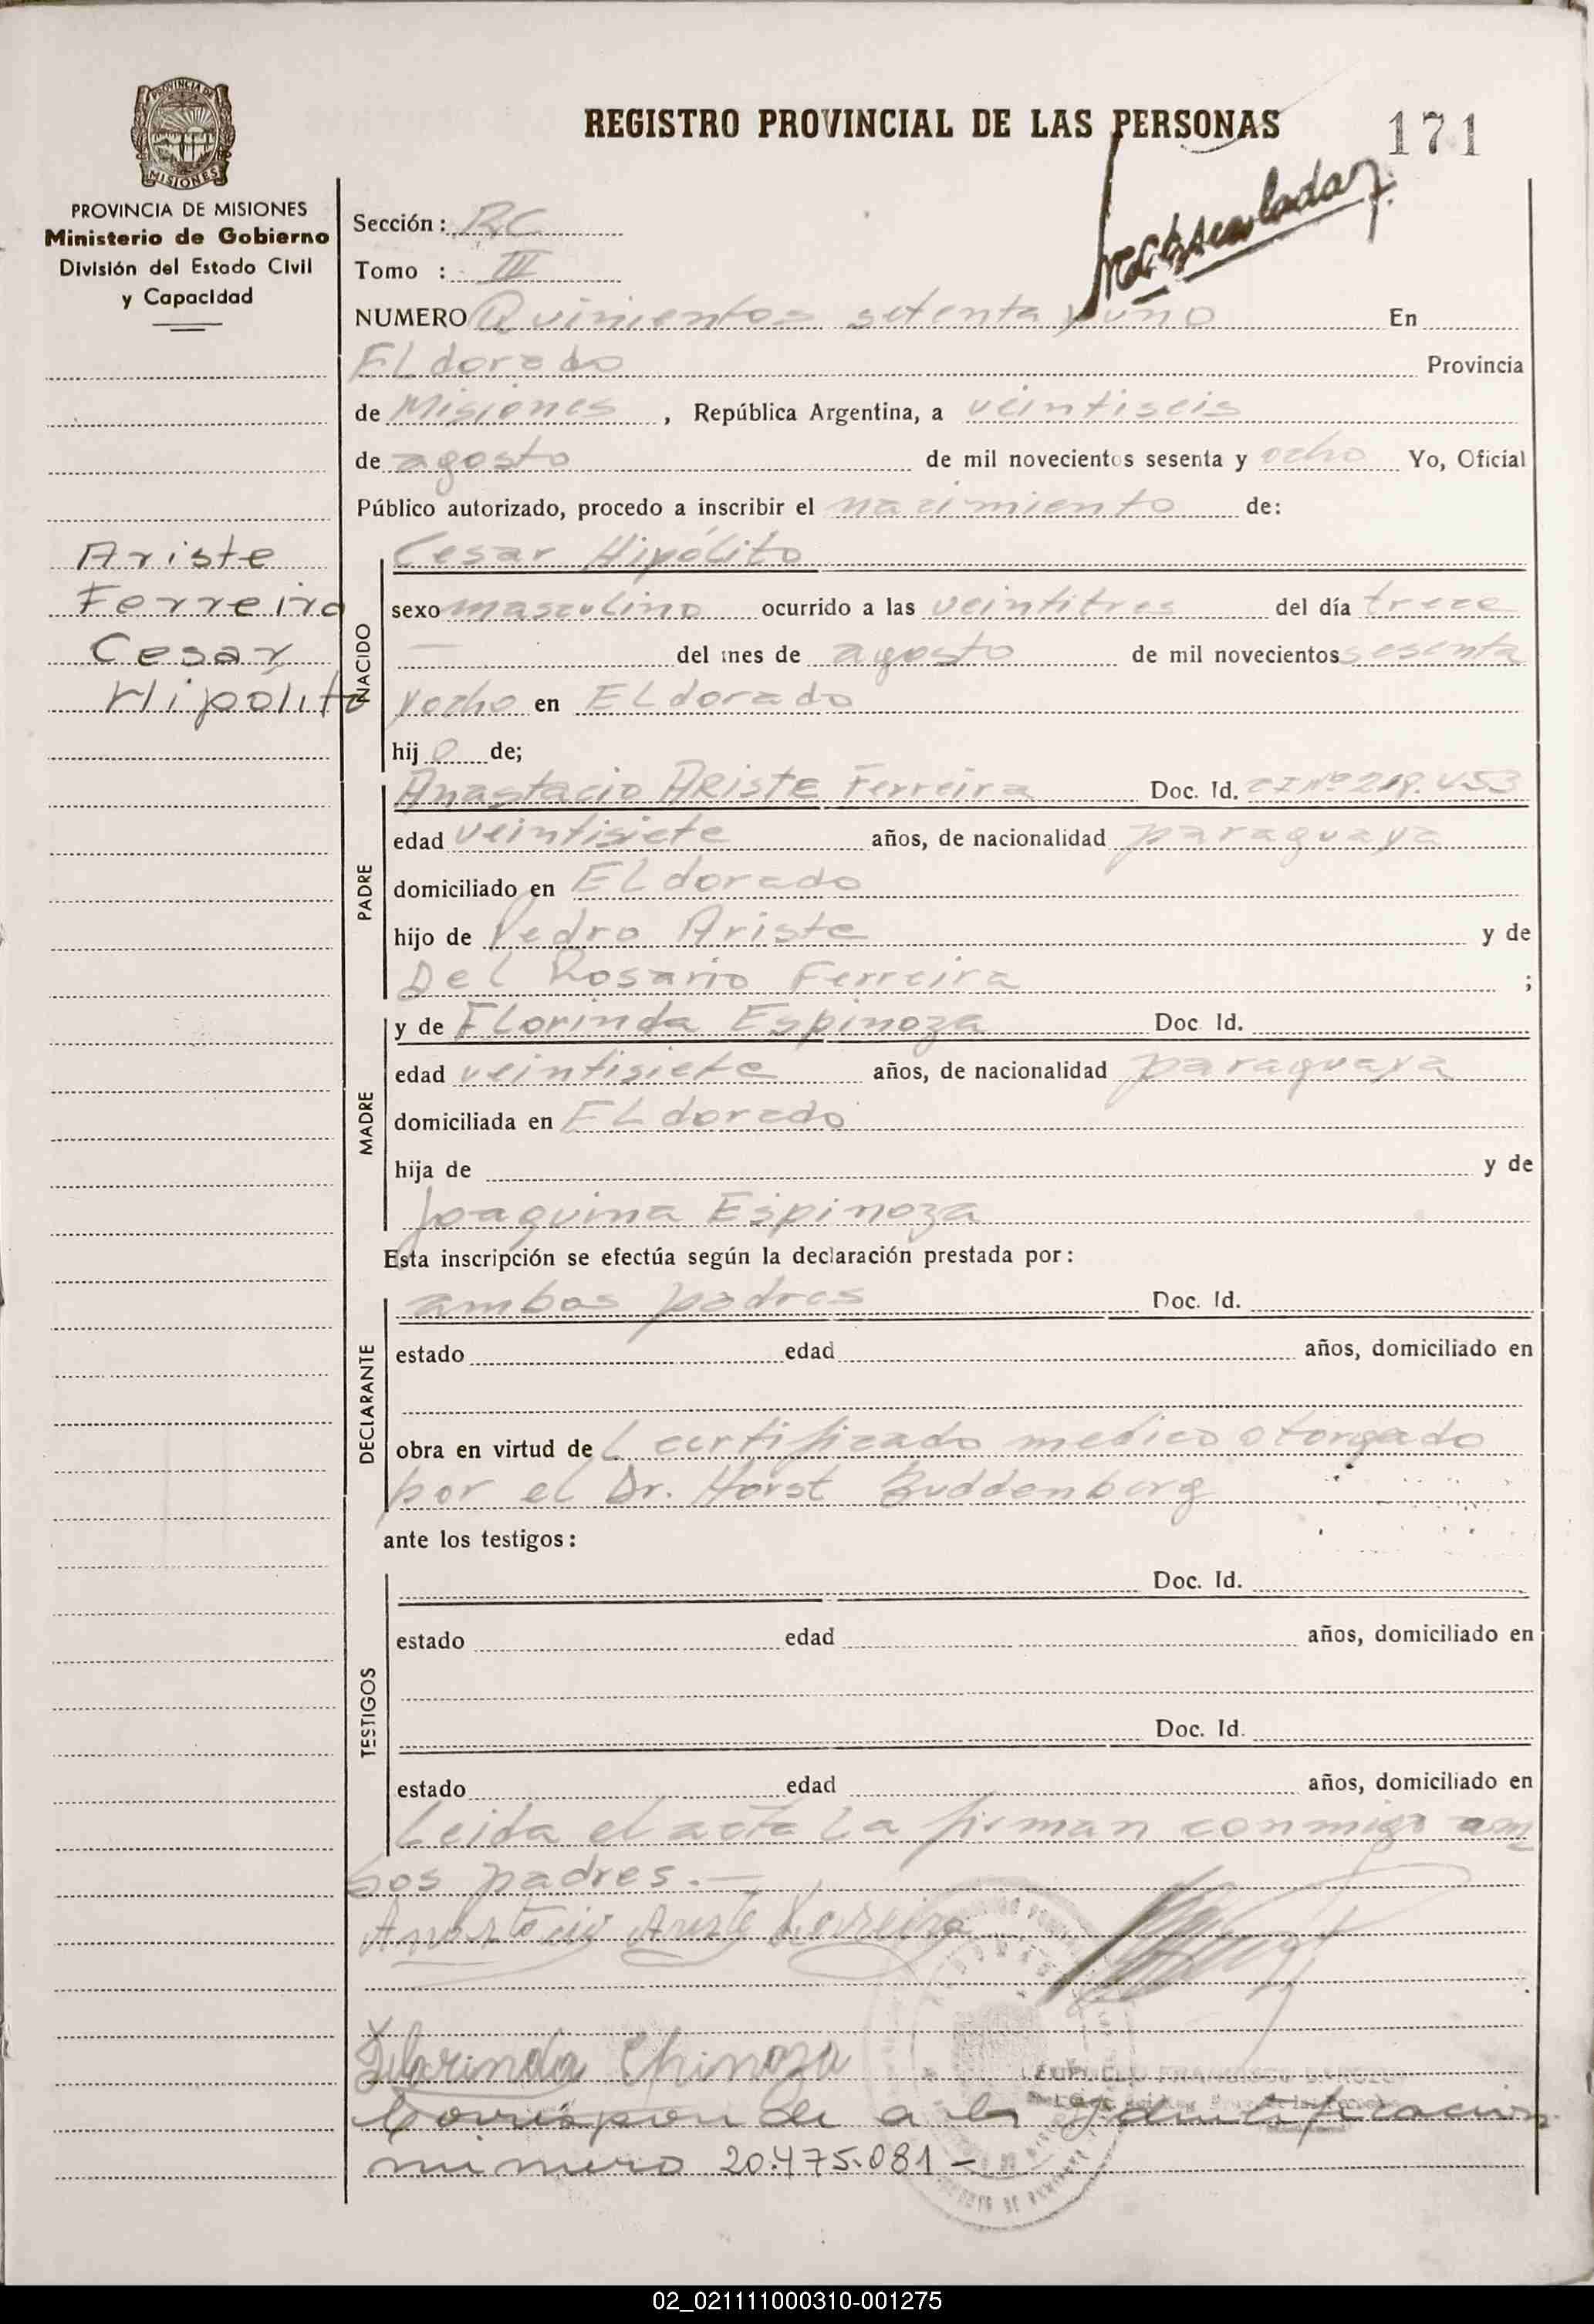 REGISTRO PROVINCIAL DE LAS PERSONAS
171
PROVINCIA DE MISIONES
Ministerio de Gobierno
División del Estado Civil
y Capacidad
Sección: RC
Tomo : III
NUMERO Quinientos setenta y uno En
ELdorado Provincia
de Misiones, República Argentina, a veintiseis
de agosto de mil novecientos sesenta y ocho Yo, Oficial
Público autorizado, procedo a inscribir el nacimiento de:
Ariste
Ferreira
Cesar
Hipólito
NACIDO
Cesar Hipólito
sexo masculino ocurrido a las veintitres del día trece
— del mes de agosto de mil novecientos sesenta
y ocho en ELdorado
hijo de;
PADRE
Anastacio ARISTE Ferreira Doc. Id. CI Nº 218.453
edad veintisiete años, de nacionalidad paraguaya
domiciliado en ELdorado
hijo de Pedro Ariste y de
Del Rosario Ferreira ;
MADRE
y de FLorinda Espinoza Doc. Id.
edad veintisiete años, de nacionalidad paraguaya
domiciliada en ELdorado
hija de y de
Joaquina Espinoza
Esta inscripción se efectúa según la declaración prestada por:
DECLARANTE
ambos padres Doc. Id.
estado edad años, domiciliado en
obra en virtud de L certificado medico otorgado
por el Dr. Horst Buddenberg
ante los testigos:
TESTIGOS
Doc. Id.
estado edad años, domiciliado en
Doc. Id.
estado edad años, domiciliado en
Leida el acta La firman conmigo am
bos padres.—
Anastacio Ariste Ferreira
Florinda Espinoza
Corresponde a la Identificacion
numero 20.475.081 -
02_021111000310-001275